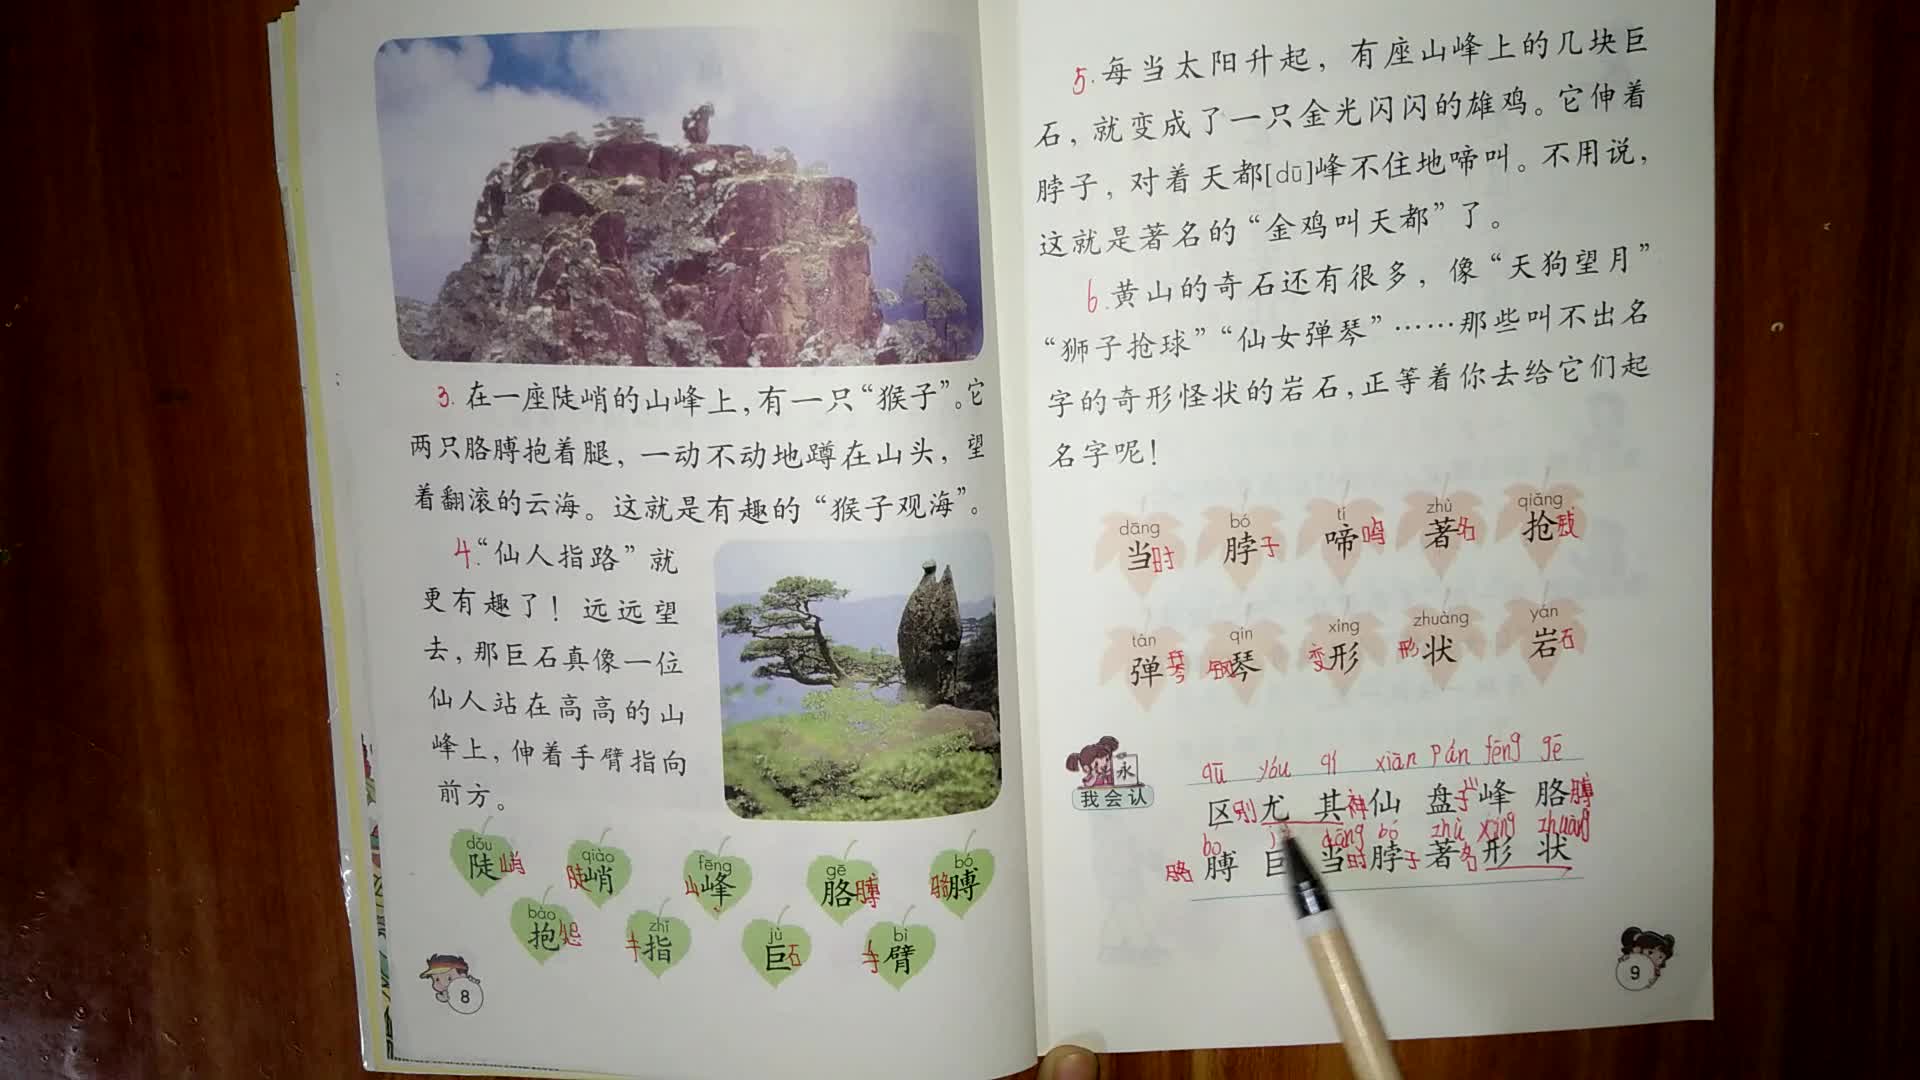 3. 在一座陡峭的山峰上，有一只“猴子”。它
两只胳膊抱着腿，一动不动地蹲在山头，望
着翻滚的云海。这就是有趣的“猴子观海”。
4.“仙人指路”就
更有趣了！远远望
去，那巨石真像一位
仙人站在高高的山
峰上，伸着手臂指向
前方。
dǒu qiào fēng gē bó
陡峭 陡峭 山峰 胳膊 胳膊
bào zhǐ jù bì
抱怨 手指 巨石 手臂
8
5. 每当太阳升起，有座山峰上的几块巨
石，就变成了一只金光闪闪的雄鸡。它伸着
脖子，对着天都[dū]峰不住地啼叫。不用说，
这就是著名的“金鸡叫天都”了。
6. 黄山的奇石还有很多，像“天狗望月”
“狮子抢球”“仙女弹琴”……那些叫不出名
字的奇形怪状的岩石，正等着你去给它们起
名字呢！
dāng bó tí zhù qiǎng
当时 脖子 啼鸣 著名 抢救
tán qín xíng zhuàng yán
弹琴 钢琴 变形 形状 岩石
永
我会认
qū yóu qí xiān pán fēng gē
区别 尤其 神仙 盘子 山峰 胳膊
bo dāng bó zhù xíng zhuàng
胳膊 巨 当时 脖子 著名 形状
9